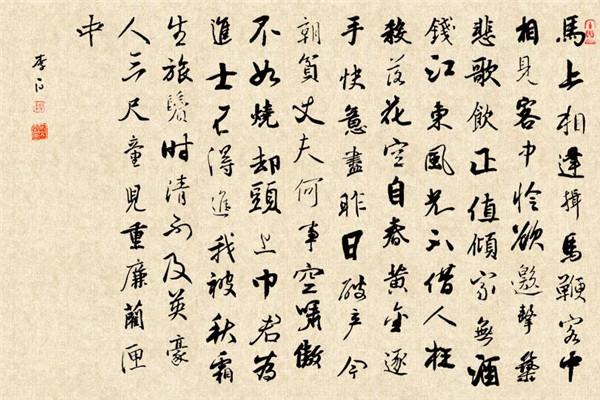 馬上相逢揖馬鞭客中
相見客中怜欲邀擊築
悲歌飲正值傾家無酒
錢江東風光不借人枉
殺落花空自春黄金逐
手快意盡昨日破产今
朝貧丈夫何事空嘯傲
不如燒却頭上巾君為
進士不得進我被秋霜
生旅鬢時清不及英豪
人三尺童兒重廉藺匣
中
李白